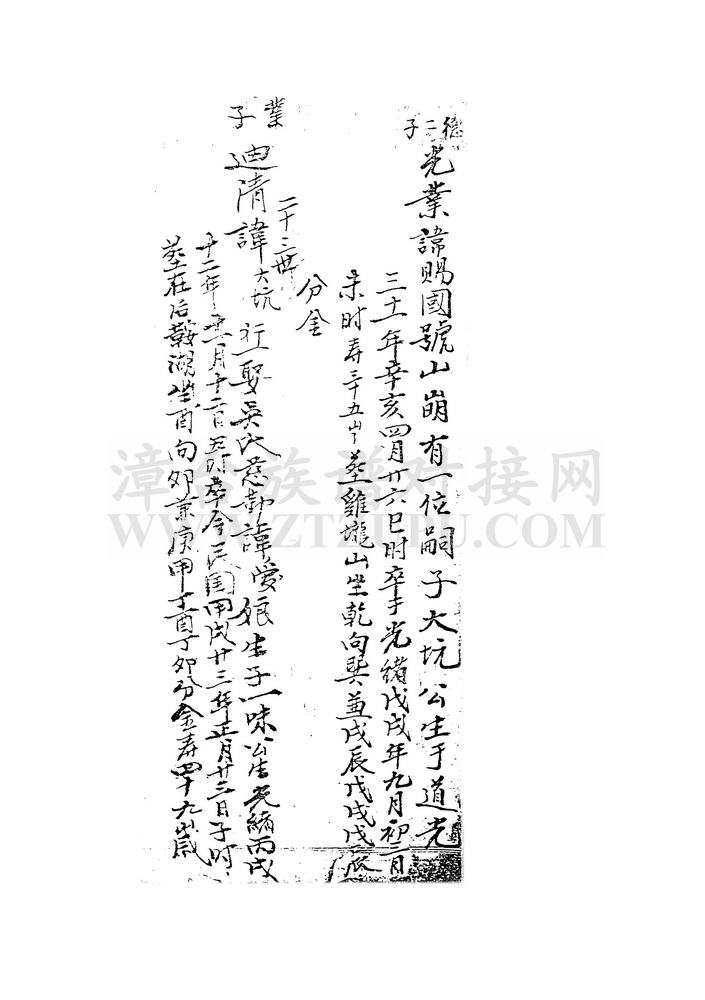 德二子
光業諱賜國號山崩有一位嗣子大坑公生于道光
三十一年辛亥四月廿六巳时卒于光緒戊戌年九月初二月
未时寿三十五山葬雞壠山坐乾向巽兼戌辰戊戌戊辰
分金
業子
二十三世
迪清諱大坑行一娶吳氏慈勤諱愛娘生子一味公生光緒丙戌
十二年十一月十二日五时卒今民国甲戌廿三年正月廿三日子时
葬在后鞍湖坐酉向卯兼庚甲丁酉丁卯分金寿四十九歲
漳台族谱对接网
WWW.ZTZUPU.COM